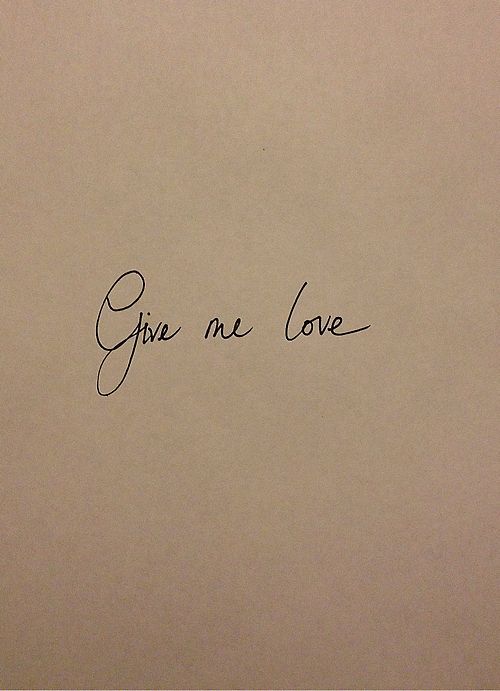 Give me love